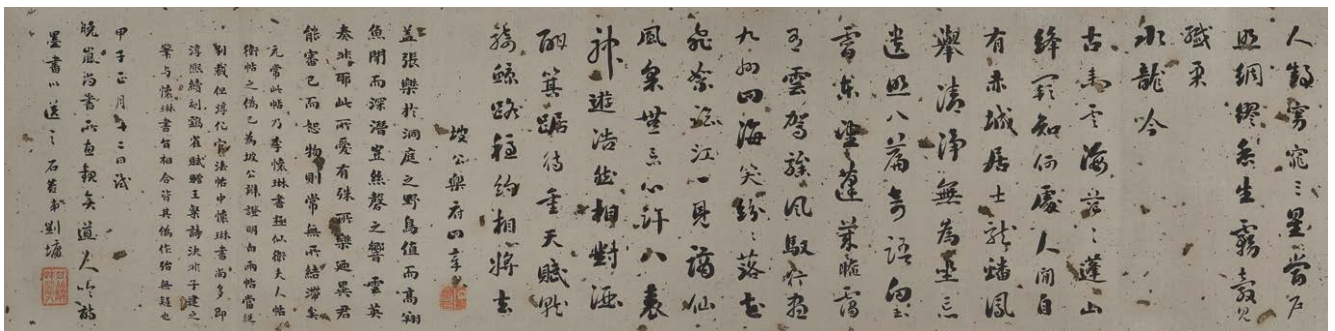 窈窕三星當戶
照綢繆香生霧縠見
纖柔
水龍吟
古來雲海茫茫蓬山
絳闕知何處人間自
有赤城居士龍蟠鳳
舉清淨無為坐忘
遺照八篇奇語向玉
霄東望蓬萊晻靄
有雲駕驂風馭行盡
九州四海笑紛紛落花
飛絮臨江一見謫仙
風采無言心許八表
神遊浩然相對酒
酣箕踞待垂天賦就
騎鯨路穩約相將去
坡公樂府四章
蓋張樂於洞庭之野鳥值而高翔
魚聞而深潛豈絲磬之響雲英
奏非耶此所愛有殊所樂廼異君
能審己而恕物則常無所結滯矣
元常此帖乃李懷琳書極似衛夫人帖
衛帖之偽已為坡公辨證明白兩帖當從
刪載但淳化官法帖中懷琳書尚多即
淳熙續刻鷂雀賦贈王粲詩決非子建之
筆与懷琳書旨相合皆其偽作殆無疑也
甲子正月十二日試
晚嵐尚書所惠 道人吟
墨書以送之 石菴弟劉墉